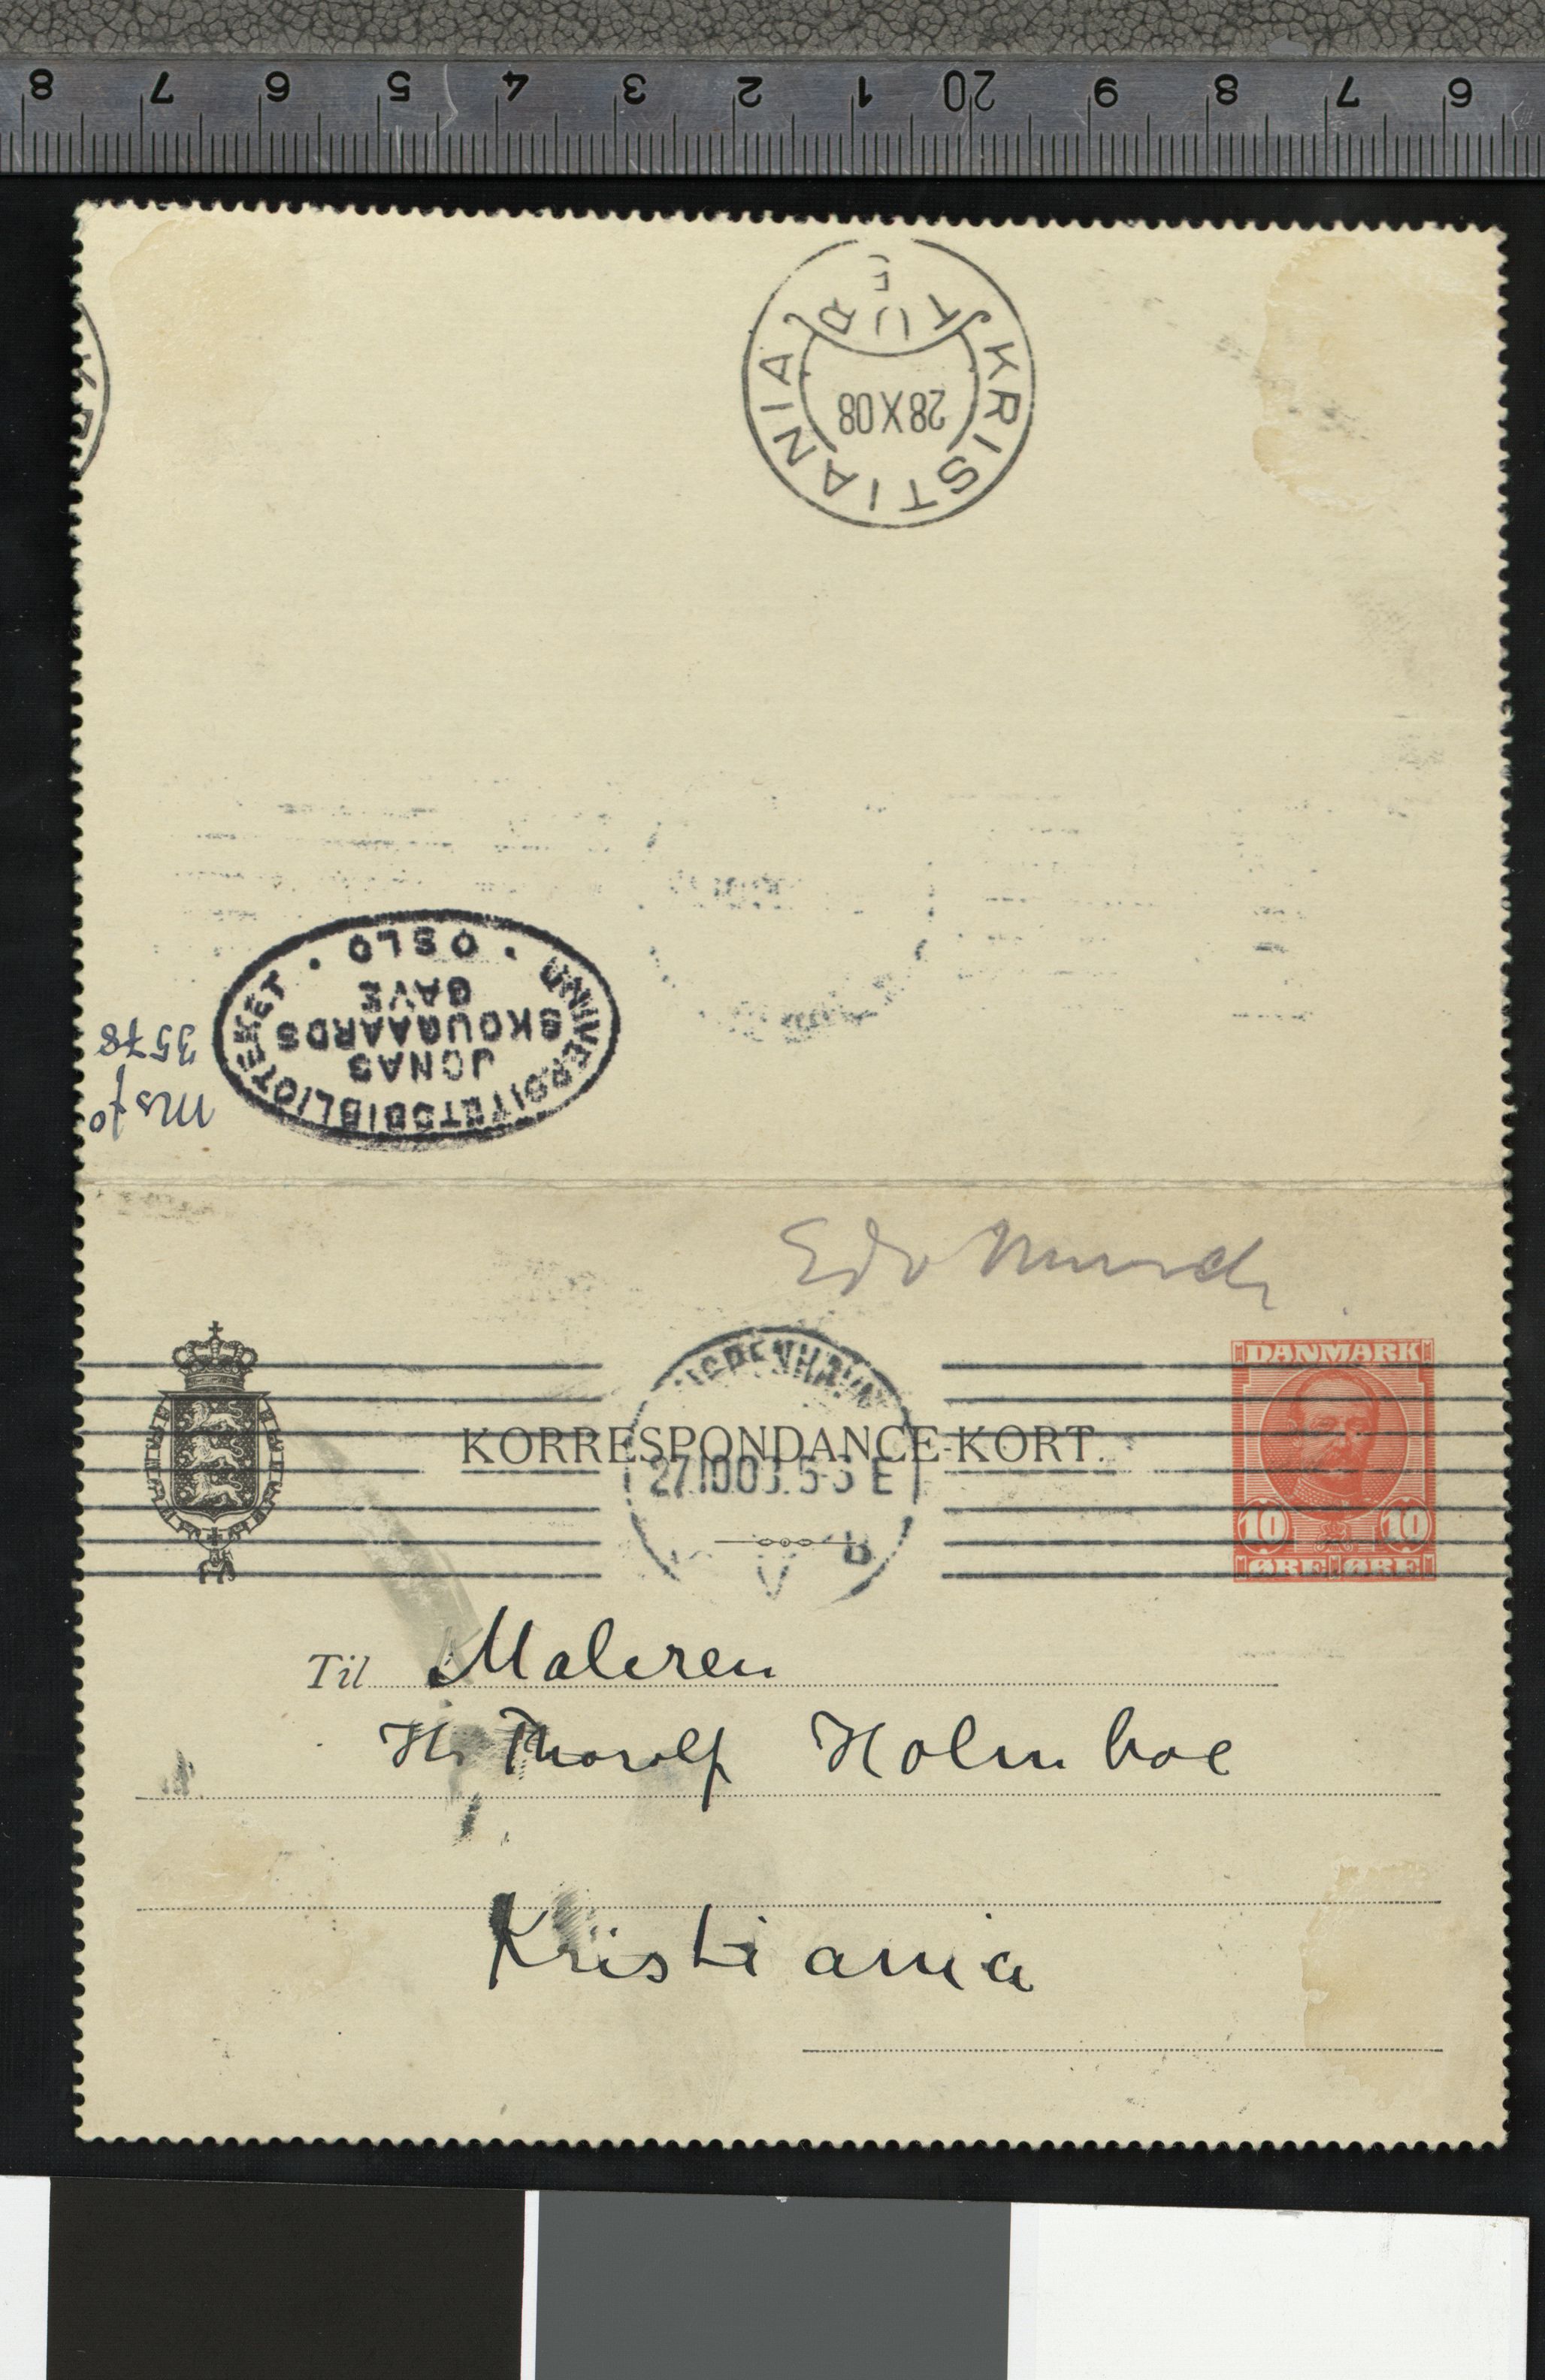 8 7 6 5 4 3 2 1 20 9 8 7 6
KRISTIANIA
TUR
28 X 08
UNIVERSITETSBIBLIOTEKET · OSLO ·
JONAS
SKOUGAARDS
GAVE
Ms fo
3578
Edv Munch
DANMARK
KJØBENHAVN
KORRESPONDANCE-KORT.
27.10.0
E
V B
10 10
ØRE ØRE
Til Maleren
Hr Thorolf Holmboe
Kristiania